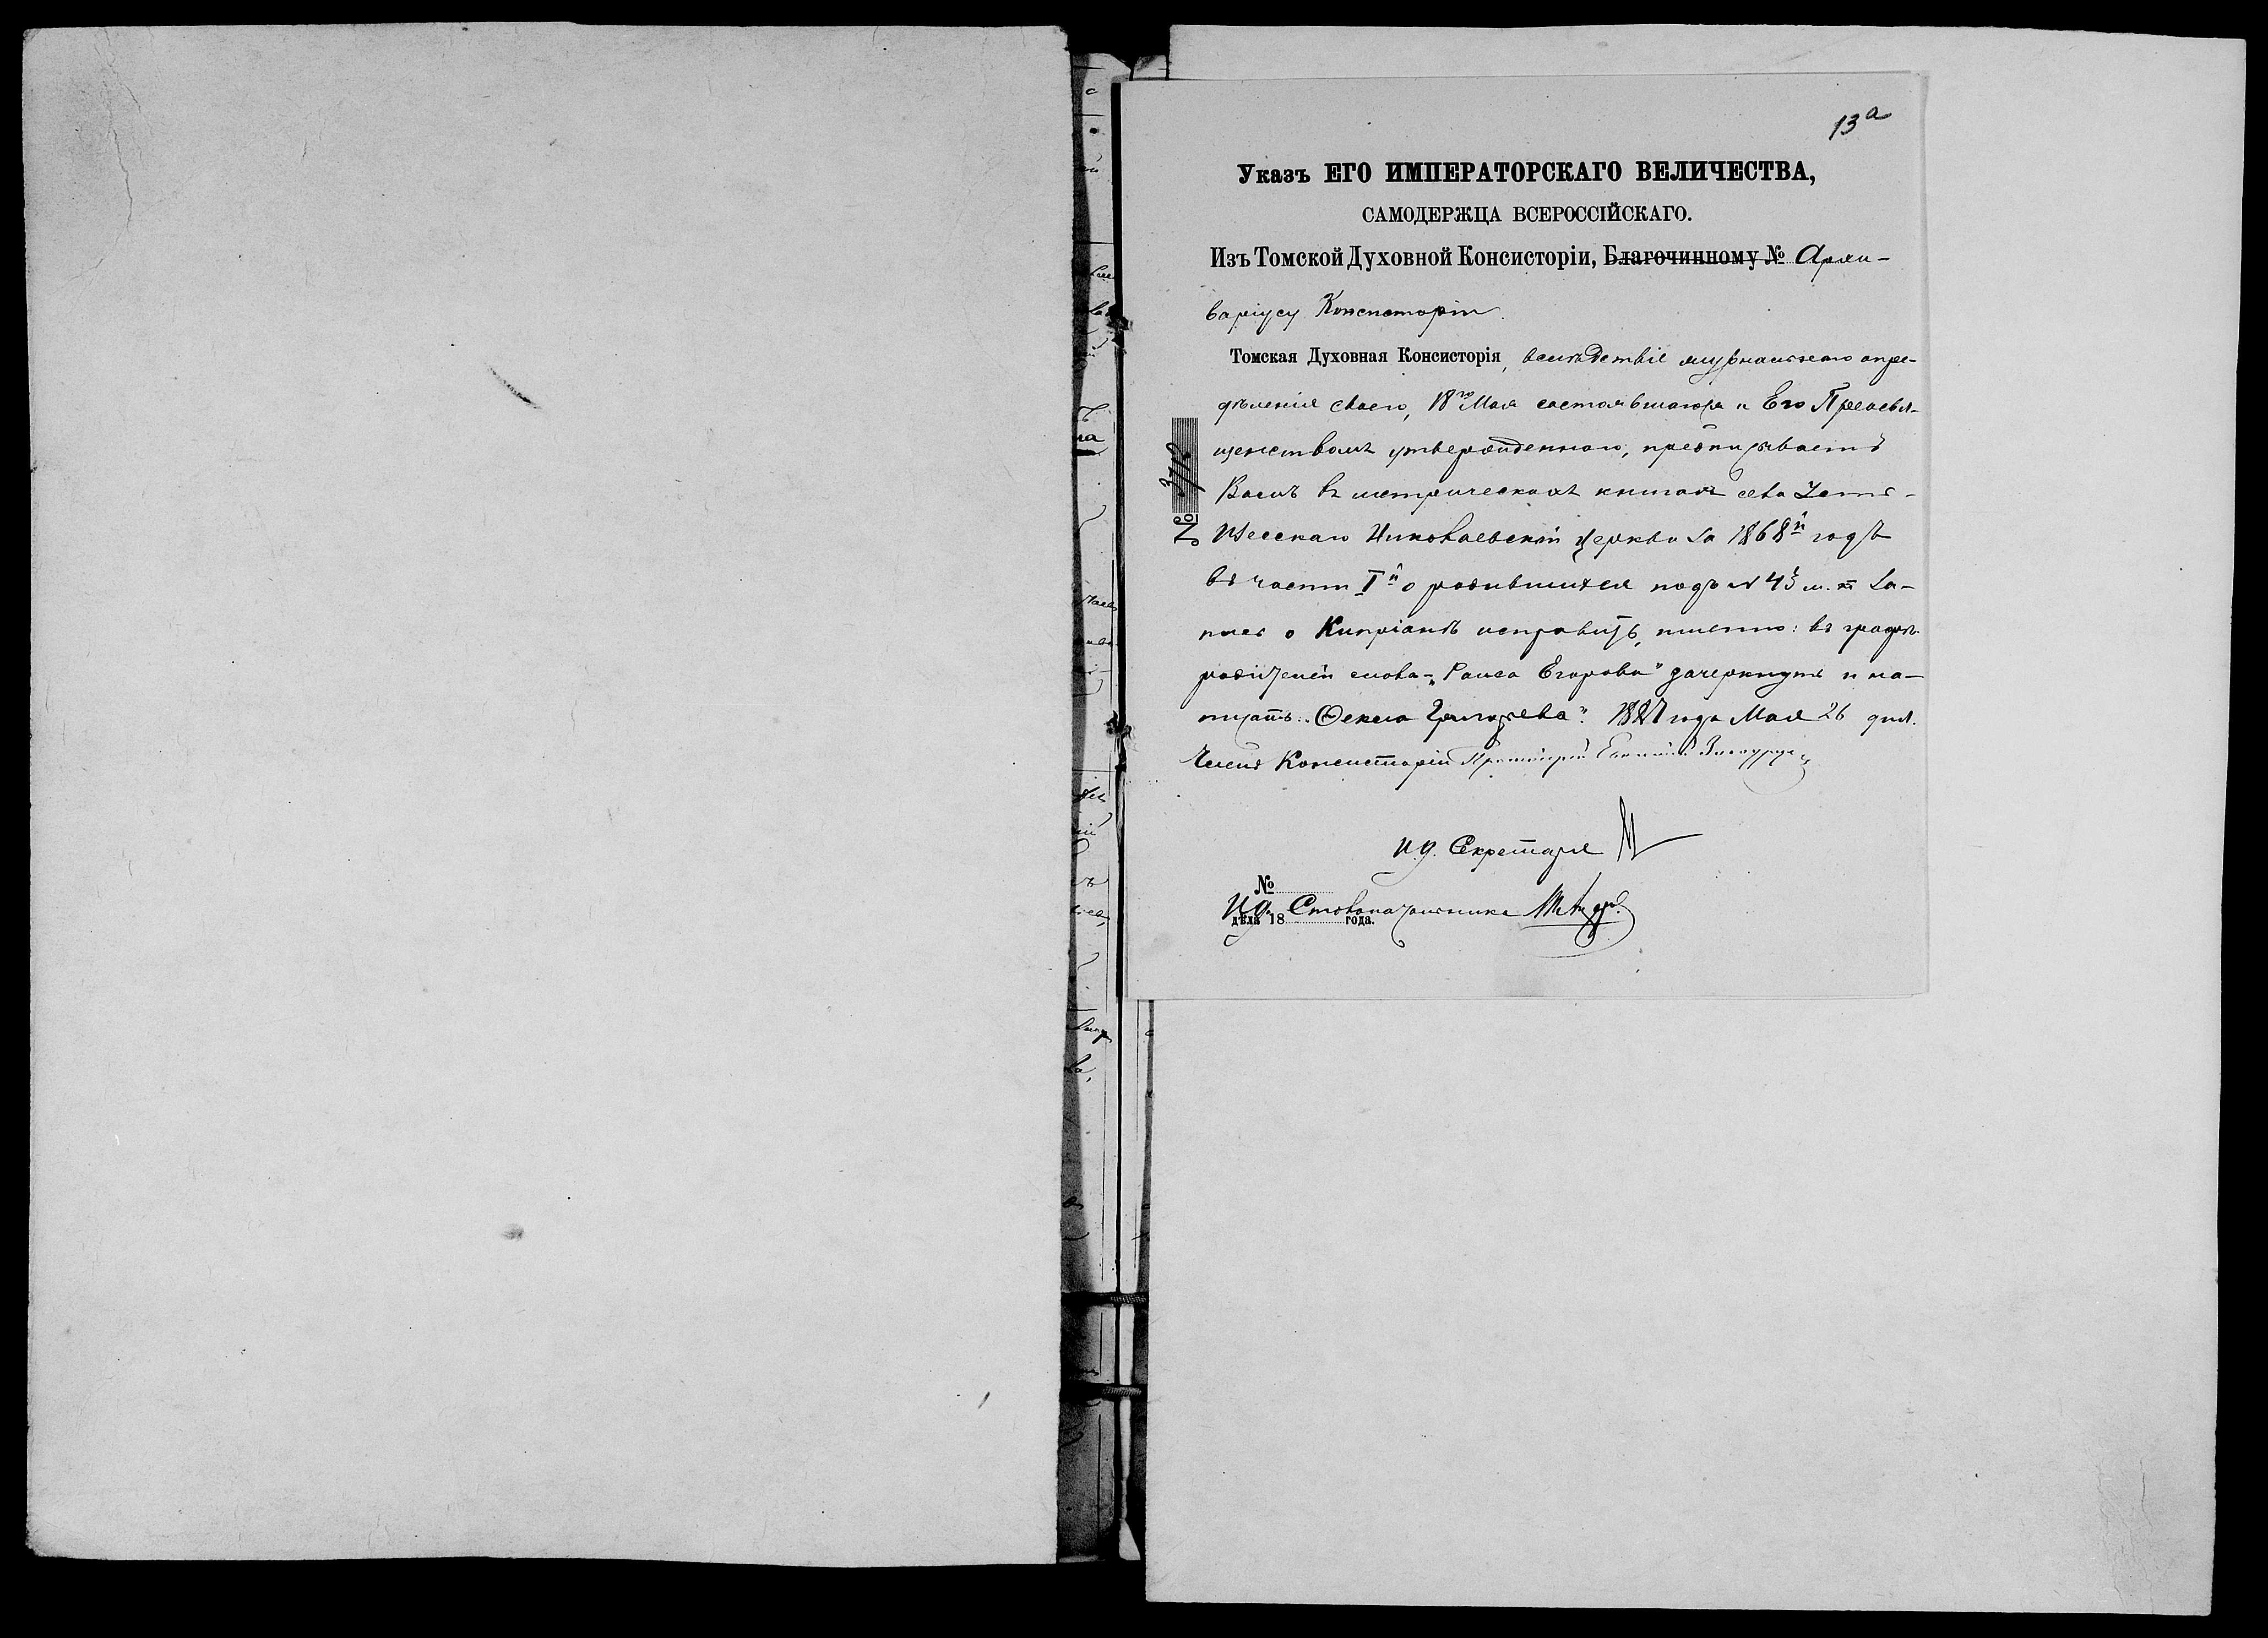 13а
Указъ ЕГО ИМПЕРАТОРСКАГО ВЕЛИЧЕСТВА,
САМОДЕРЖЦА ВСЕРОССІЙСКАГО.
Изъ Томской Духовной Консисторіи, Благочинному № Архи-
варіусу Консисторіи.
Томская Духовная Консисторія, вслѣдствіе журнальнаго опре-
дѣленія своего, 18го Мая состоявшагося и Его Преосвя-
щенствомъ утвержденнаго, предписываетъ
Вамъ въ метрическихъ книгахъ села
Николаевской церкви за 1868й годъ
въ части Iй о родившихся подъ № 43 м. п. за-
пись о Кипріанѣ исправить, именно: въ графѣ
родителей слова - „Раиса Егорова" зачеркнуть и на-
писать: „Ѳекла Григорьева". 1887 года Мая 26 дня.
Членъ Консисторіи Протоіерей
И.д. Секретаря
№
И.д. Столоначальника
дѣла 18 года.
№ 3712